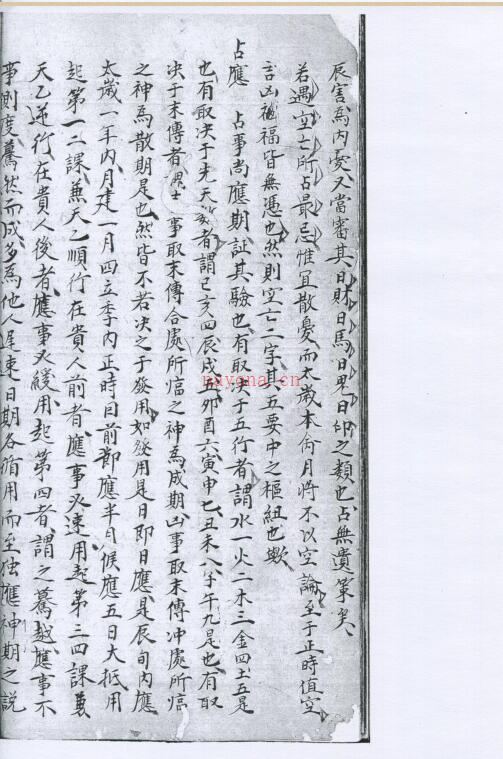 辰害為內憂又當審其日財日馬日鬼日印之類也占無遺策矣
若遇空亡所占最忌惟宜散憂而太歲本命月將不以空論至于正時值空
言凶禍福皆無憑也然則空亡二字其五要中之樞紐也歟
占應 占事尚應期証其驗也有取決于五行者謂水一火二木三金四土五是
也有取決于先天数者謂巳亥四辰戌五卯酉六寅申七丑未八子午九是也有取
決于末傳者 事取末傳合處所臨之神為成期凶事取末傳冲處所臨
之神為散期是也然皆不若決之于發用如發用是日即日應是辰旬內應
太歲一年內月建一月四立季內正時日前節應半月候應五日大抵用
起第一二課兼天乙順行在貴人前者應事必速用起第三四課兼
天乙逆行在貴人後者應事必緩用起第四者謂之驀越應事不
事則度驀然而成多為他人尾速日期各循用而至独應神期之説
nayona.cn